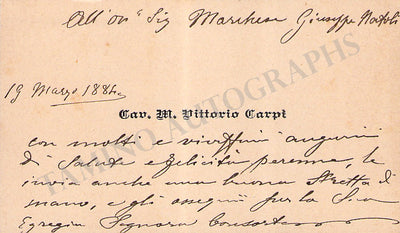 All'on° Sig Marchese Giuseppe Natoli
19 Marzo 1884
Cav. M. Vittorio Carpi
con molti e vivissimi auguri
di Salute e felicità perenne, le
invia anche una buona Stretta di
mano, e gli ossequi per la Sua
Egregia Signora Consorte
TAMINO AUTOGRAPHS